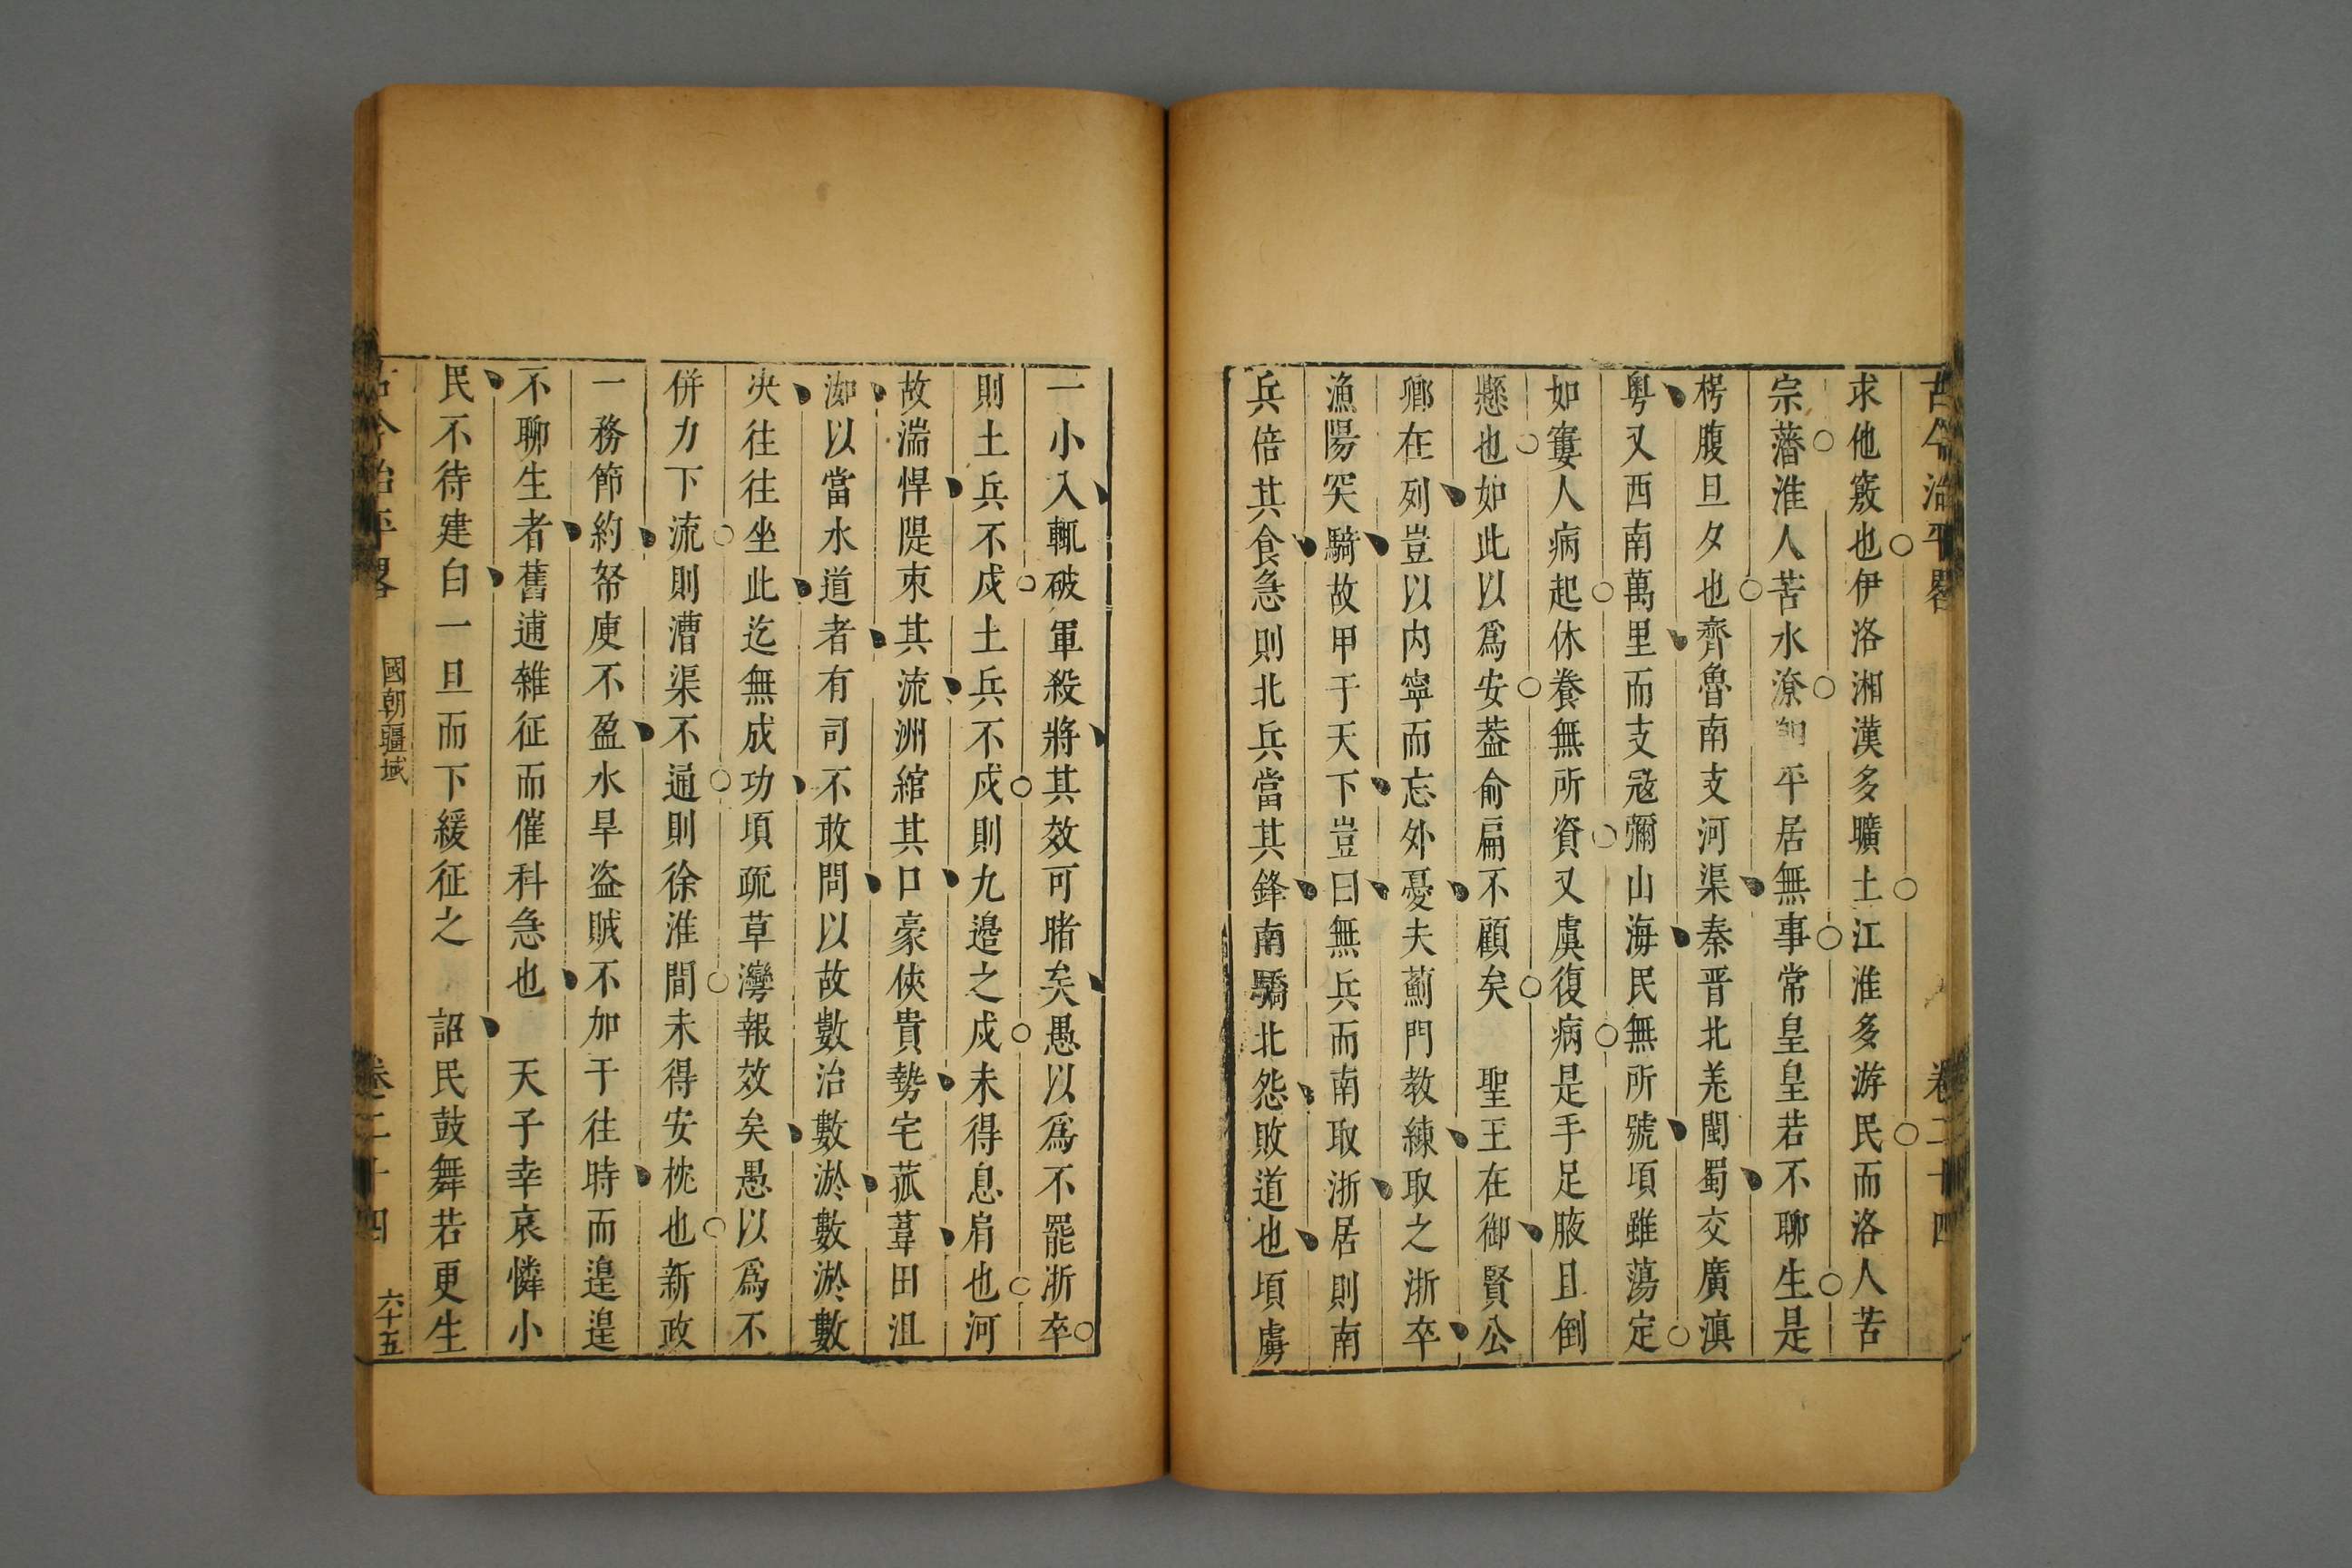 古今治平畧　卷二十四
求他竅也伊洛湘漢多曠土江淮多游民而洛人苦
宗藩淮人苦水潦　平居無事常皇皇若不聊生是
枵腹旦夕也齊魯南支河渠秦晋北羌閩蜀交廣滇
粵又西南萬里而支寇彌山海民無所號頃雖蕩定
如窶人病起休養無所資又虞復病是手足腋且倒
懸也如此以爲安葢俞扁不顧矣　聖王在御賢公
卿在列豈以内寧而忘外憂夫薊門教練取之浙卒
漁陽突騎故甲于天下豈曰無兵而南取浙居則南
兵倍其食急則北兵當其鋒南驕北怨敗道也頃虜
一小入輒破軍殺將其效可睹矣愚以爲不罷浙卒
則土兵不戍土兵不戍則九邉之戍未得息肩也河
故湍悍隄束其流洲綰其口豪俠貴勢宅菰葦田沮
洳以當水道者有司不敢問以故數治數淤數淤數
决往往坐此迄無成功頃疏草灣報效矣愚以爲不
併力下流則漕渠不通則徐淮間未得安枕也新政
一務節約帑庾不盈水旱盗賊不加于往時而遑遑
不聊生者舊逋雜征而催科急也　天子幸哀憐小
民不待建白一旦而下緩征之　詔民鼓舞若更生
古今治平畧　國朝疆域　卷二十四　六十五